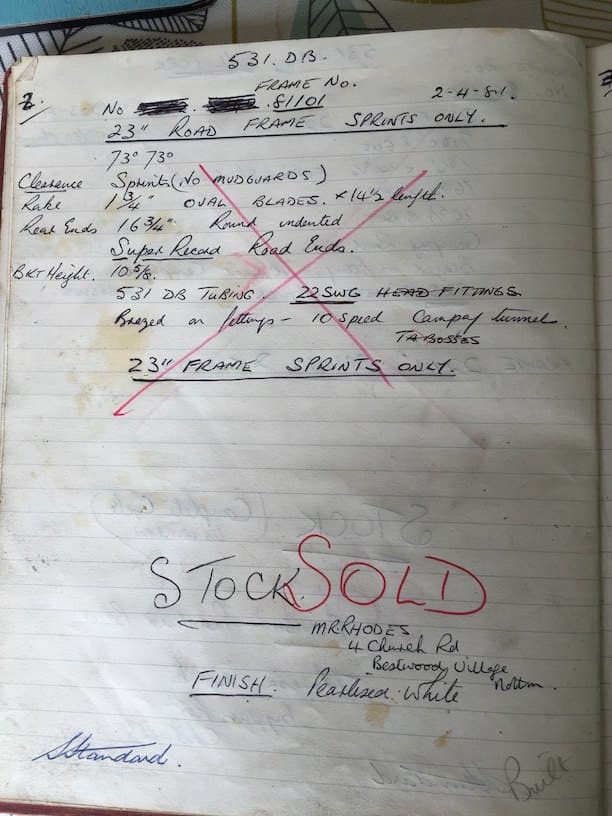 531. DB.
FRAME No.
2.
No 81101
2-4-81.
23" ROAD FRAME SPRINTS ONLY.
73° 73°
Clearance Sprints (No MUDGUARDS)
Rake 1 3/4" OVAL BLADES. x 14 1/2 length.
Rear Ends 16 3/4". Round indented
Super Record Road Ends.
BKT Height. 10 5/8.
531 DB TUBING. 22SWG HEAD FITTINGS
Brezed on fittings - 10 speed Campag tunnel.
TA BOSSES
23" FRAME SPRINTS ONLY.
STOCK. SOLD
MR RHODES
4 Church Rd
Bestwood Village
Nottm.
FINISH. Pearlised White
Standard.
Built